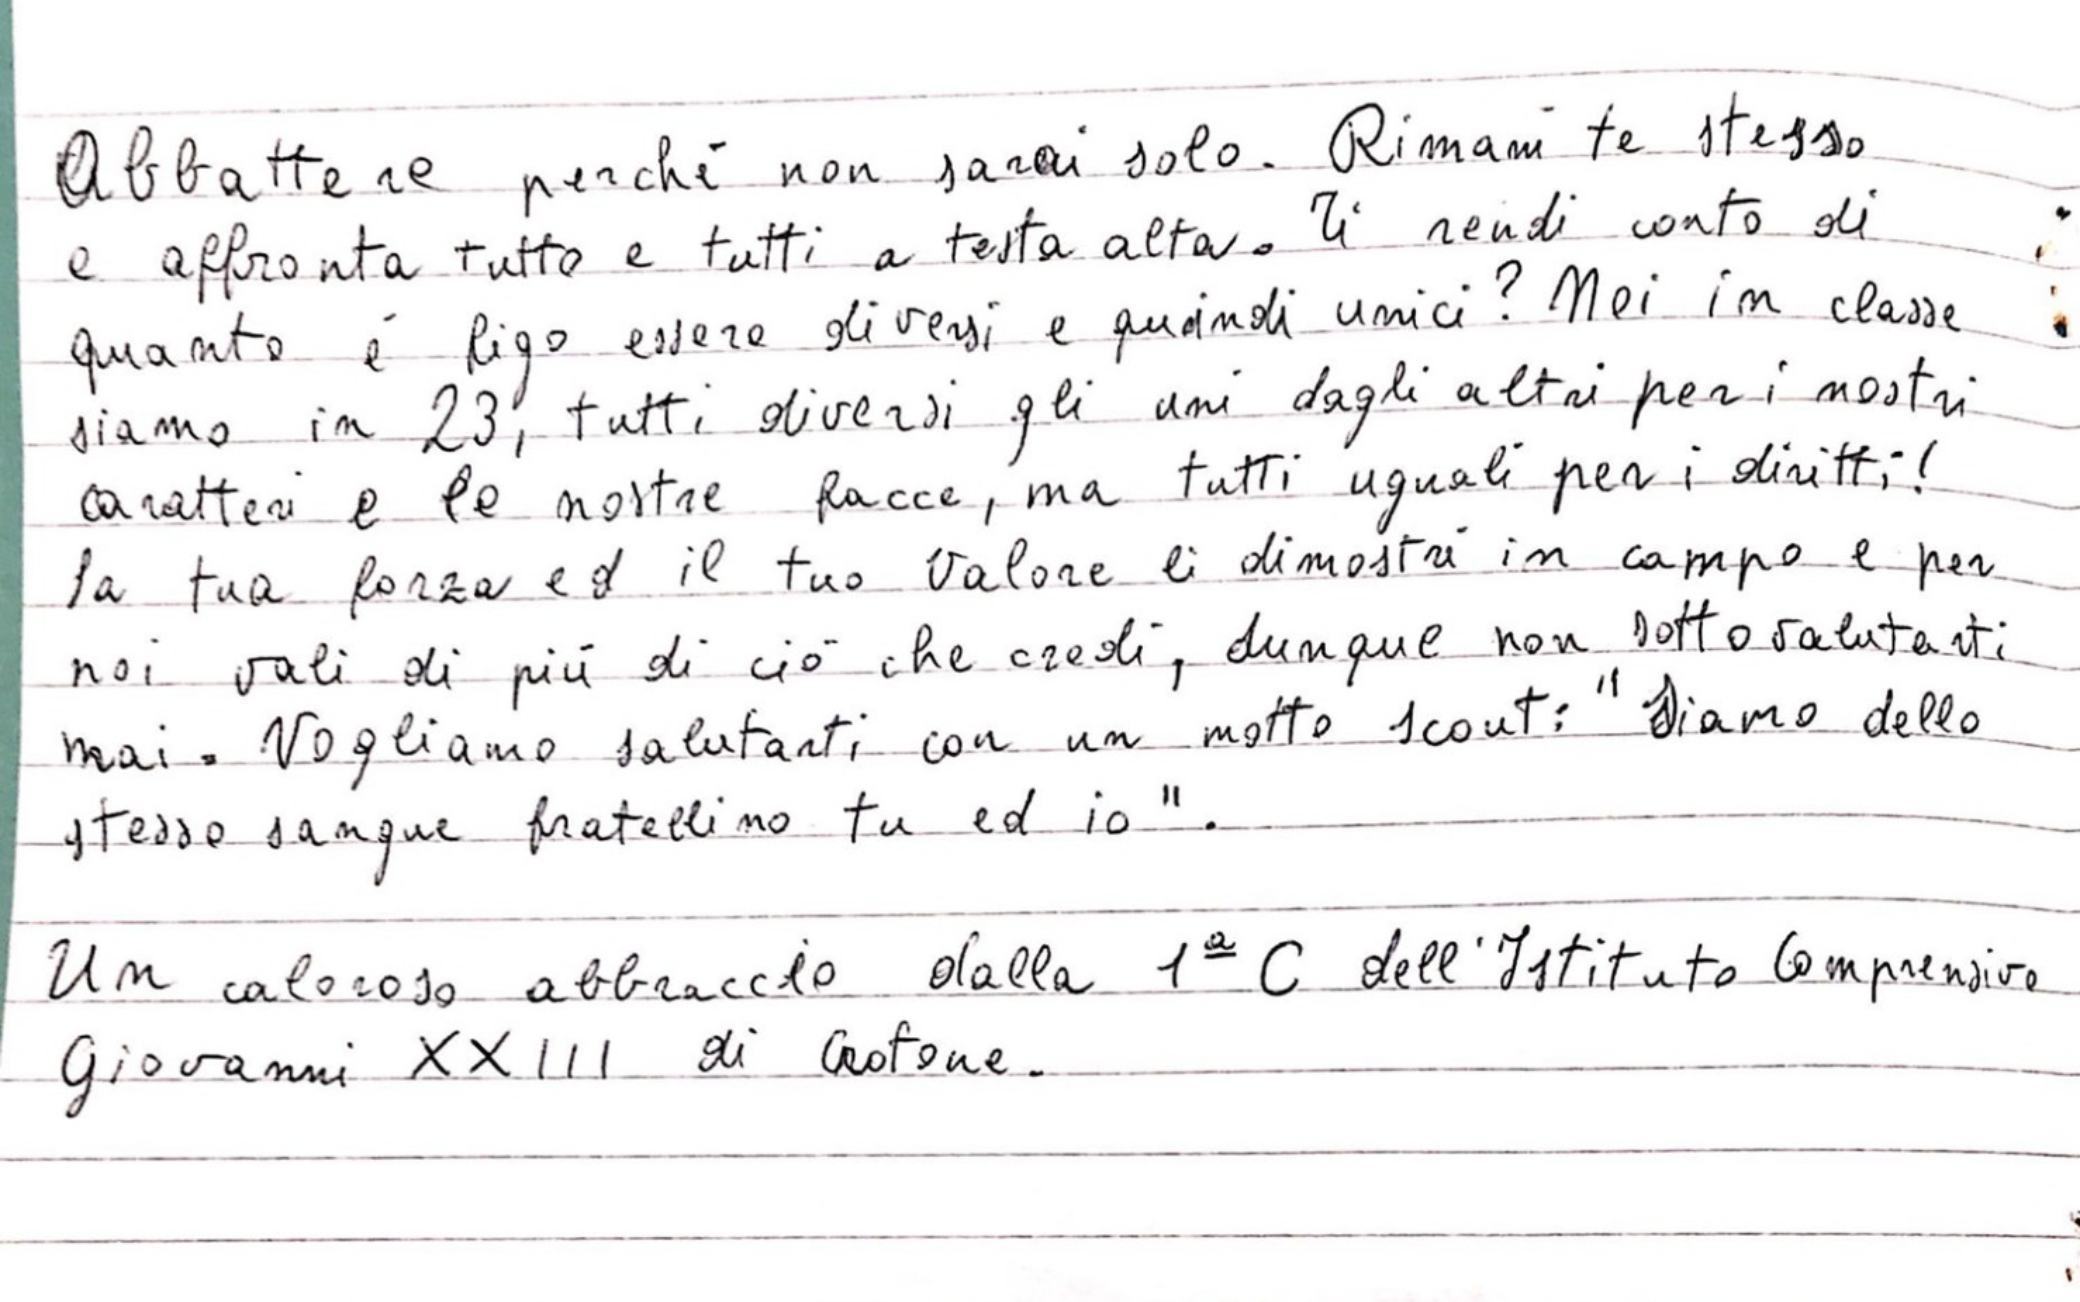 Abbattere perché non sarai solo. Rimani te stesso
e affronta tutto e tutti a testa alta. Ti rendi conto di
quanto é figo essere diversi e quindi unici? Noi in classe
siamo in 23, tutti diversi gli uni dagli altri per i nostri
caratteri e le nostre facce, ma tutti uguali per i diritti!
la tua forza ed il tuo valore li dimostri in campo e per
noi vali di più di ciò che credi, dunque non sottovalutarti
mai. Vogliamo salutarti con un motto scout: "Siamo dello
stesso sangue fratellino tu ed io".
Un caloroso abbraccio dalla 1ª C dell'Istituto Comprensivo
Giovanni XXIII di Crotone.